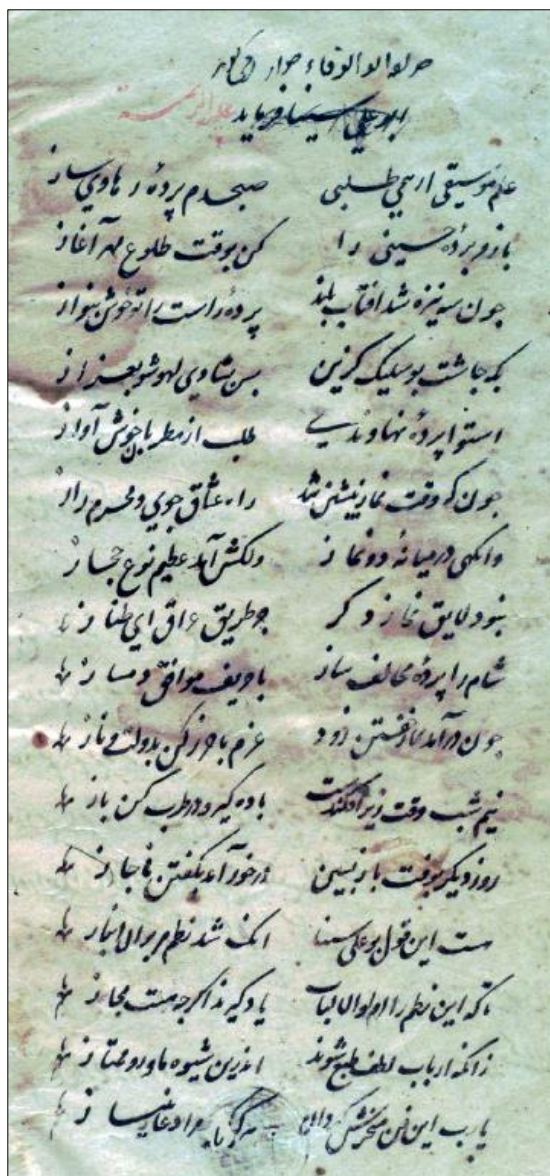 مولانا ابو الوفاء خوارزمی گوید
ابو علی سینا فرماید علیه الرحمه
علم موسیقی ار همی طلبی صبحدم پردهٔ رهاوی ساز
باز و پردهٔ حسینی را کن بوقت طلوع مهر آغاز
جون سه نیزه شد افتاب بلند پردهٔ راست را تو خوش بنواز
که جاشت بوسلیک گزین بس نهاوی لهو شو بعد از
استوا پردهٔ نهاوندی طلب از مطربان خوش آواز
جون که وقت نماز پیشن شد راه عشاق جوی و محرم راز
وانکهی در میانهٔ دو نماز دلکش آمد عظیم نوع حجاز
نبود لایق نماز دکر جو طریق عراق ای طناز
شام را پردهٔ مخالف ساز با حریف موافق دمساز
جون درآمد نماز خفتن زود عزم باخرز کن بدولت و ناز
نیم شب وقت زیرافکندست باده کیر و در طرب کن باز
روز دیکر بوقت باز بسین درخور آمد بکفتن ناجاز
هست این قول بو علی سینا انک شد نظم بر بو الانجاز
تا که این نظم را اولو الالباب یاد کیرند اکرجه هست مجاز
زانکه ارباب لطف طبع شوند اندرین شیوه ماهر و ممتاز
یا رب این فن مسخرش کردان